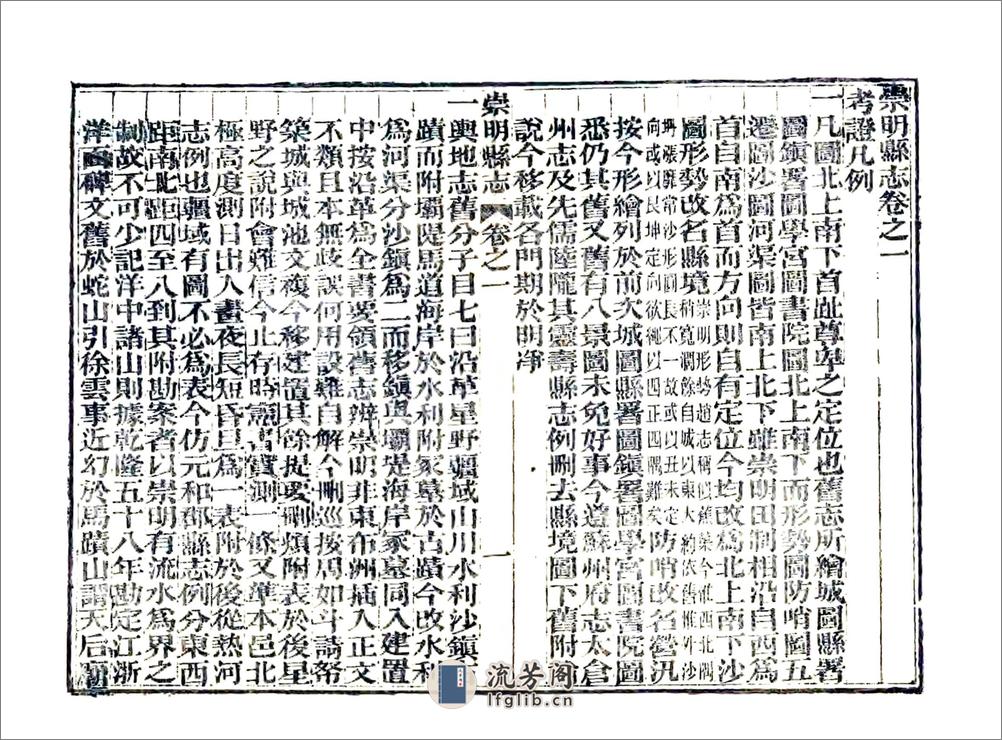 崇明縣志卷之一
考證凡例
一凡圖北上南下首趾尊卑之定位也舊志所繪城圖縣署
圖鎮署圖學宮圖書院圖北上南下而形勢圖防哨圖五
圖沙圖河渠圖皆南上北下雖崇明田制相沿自西爲
首自南爲首而方向則自有定位今均改爲北上南下沙
圖形勢改名縣境
崇明形勢趙志稱似
今惟西北隅
稍寬濶餘自城以東大約依舊惟外沙
坍漲靡常沙形圓長不一故或以丑未定
向或以艮坤定向欲繩以四正四隅難矣
防哨改名營汛
按今形繪列於前次城圖縣署圖鎮署圖學宮圖書院圖
悉仍其舊又舊有八景圖未免好事今遵蘇州府志太倉
州志及先儒陸隴其靈壽縣志例刪去縣境圖下舊附
說今移載各門期於明淨
崇明縣志
卷之一
一
一輿地志舊分子目七曰沿革星野疆域山川水利沙鎮古
蹟而附壩隄馬道海岸於水利附冢墓於古蹟今改水利
爲河渠分沙鎮爲二而移鎮與壩堤海岸冢墓同入建置
中按沿革爲全書要領舊志辨崇明非東布洲插入正文
不類且本無歧說何用設難自解今刪巡按周如斗請帑
築城與城池文複今移建置其餘提要刪煩附表於後星
野之說附會難信今止存時憲書實測一條又準本邑北
極高度測日出入晝夜長短昏旦爲一表附於後從熱河
志例也疆域有圖不必爲表今仿元和郡縣志例分東西
距南北距四至八到其附勘案者以崇明有流水爲界之
制故不可少記洋中諸山則據乾隆五十八年勘定江浙
洋面碑文舊於蛇山引徐雲事近幻於馬蹟山謂天后廟
流芳阁
lfglib.cn